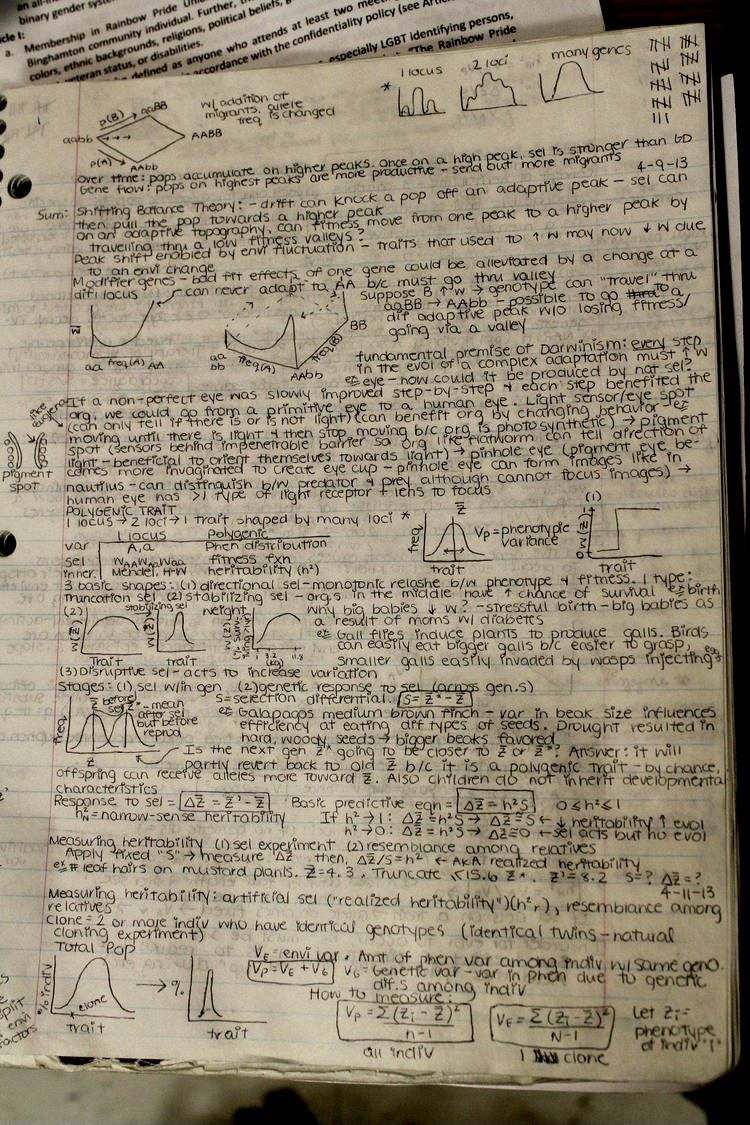 binary gender
a. Membership in Rainbow Pride
Binghamton community individual. Further,
colors, ethnic backgrounds, religions, political beliefs,
veteran status, or disabilities.
defined as anyone who attends at least two
accordance with the confidentiality policy (see
especially LGBT identifying persons,
"The Rainbow Pride
1 locus
2 loci
many genes
*
p(B)
aaBB
aabb
AABB
p(A)
AAbb
w/ addition of
migrants, allele
freq is changed
Over time: pops accumulate on higher peaks. once on a high peak, sel is stronger than GD
Gene flow: pops on highest peaks are more productive - send out more migrants
4-9-13
Sum: Shifting Balance Theory: - drift can knock a pop off an adaptive peak - sel can
then pull the pop towards a higher peak
on an adaptive topography, can fitness move from one peak to a higher peak by
travelling thru a low fitness valleys?
Peak shift enabled by envi fluctuation - traits that used to ↑ W may now ↓ W due
to an envi change
Modifier genes - bad fit effects of one gene could be alleviated by a change at a
dif locus
can never adapt to AA b/c must go thru valley
Suppose B ↑ W → genotype can "travel" thru
aaBB → AAbb - possible to go to a
dif adaptive peak w/o losing fitness/
going via a valley
W̄
aa freq(A) AA
aa
bb
freq(A)
AAbb
freq(B)
BB
fundamental premise of Darwinism: every step
in the evol of a complex adaptation must ↑ W
ex eye - how could it be produced by nat sel?
If a non-perfect eye was slowly improved step-by-step & each step benefited the
org, we could go from a primitive eye to a human eye. Light sensor/eye spot
(can only tell if there is or is not light) (can benefit org by changing behavior - ex
moving until there is light & then stop moving b/c org is photosynthetic) → pigment
spot (sensors behind impenetrable barrier so org like flatworm can tell direction of
light - beneficial to orient themselves towards light) → pinhole eye (pigment eye be-
comes more invaginated to create eye cup - pinhole eye can form images like in
nautilus - can distinguish b/w predator & prey although cannot focus images) →
human eye has >1 type of light receptor + lens to focus
pigment
spot
POLYGENIC TRAIT
1 locus → 2 loci → 1 trait shaped by many loci *
1 locus Polygenic
var A, a Phen distribution
sel WAA WAa Waa fitness fxn
inher. Mendel, H-W heritability (h²)
freq.
z̄
trait
Vp = phenotypic
variance
(1)
trait
3 basic shapes: (1) directional sel - monotonic relashe b/w phenotype & fitness. 1 type:
truncation sel (2) stabilizing sel - org.s in the middle have ↑ chance of survival ex birth
(2)
stabilizing sel
weight
W(z)
Trait
W(z)
trait
why big babies ↓ W? - stressful birth - big babies as
a result of moms w/ diabetes
ex Gall flies induce plants to produce galls. Birds
can easily eat bigger galls b/c easier to grasp,
smaller galls easily invaded by wasps injecting
(3) Disruptive sel - acts to increase variation
Stages: (1) sel w/in gen (2) genetic response to sel (across gen.s)
S = selection differential. S = z̄* - z̄
freq.
z̄ before
sel
z̄* - mean
after sel
but before
reprod
z̄
ex Galapagos medium brown finch - var in beak size influences
efficiency at eating dif types of seeds. Drought resulted in
hard, woody seeds → bigger beaks favored
Is the next gen z̄' going to be closer to z̄ or z̄*? Answer: it will
partly revert back to old z̄ b/c it is a polygenic trait - by chance,
offspring can receive alleles more toward z̄. Also children do not inherit developmental
characteristics
Response to sel = Δz̄ = z̄' - z̄ Basic predictive eqn = Δz̄ = h²S 0 ≤ h² ≤ 1
h² = narrow-sense heritability If h² → 1: Δz̄ = h²S → Δz̄ ≅ S ← ↓ heritability ↑ evol
h² → 0: Δz̄ = h²S → Δz̄ ≅ 0 ← sel acts but no evol
Measuring heritability (1) sel experiment (2) resemblance among relatives
Apply fixed "S" → measure Δz̄ then, Δz̄/S = h² ← AKA realized heritability
ex # leaf hairs on mustard plants. z̄ = 4.3, Truncate 15.6 z̄*. z̄' = 8.2 S = ? Δz̄ = ?
4-11-13
Measuring heritability: artificial sel ("realized heritability") (h²r), resemblance among
relatives
Clone = 2 or more indiv who have identical genotypes (identical twins - natural
cloning experiment)
Total Pop
% indiv
clone
trait
→ %
trait
VE = envi var. Amt of phen var among indiv w/ same geno.
Vp = VE + VG
VG = Genetic var - var in phen due to genetic
dif.s among indiv
How to measure:
Vp = Σ(zi - z̄)²
n-1
all indiv
VE = Σ(zi - z̄)²
N-1
1 clone
Let zi =
phenotype
of indiv "i"
envi
factors